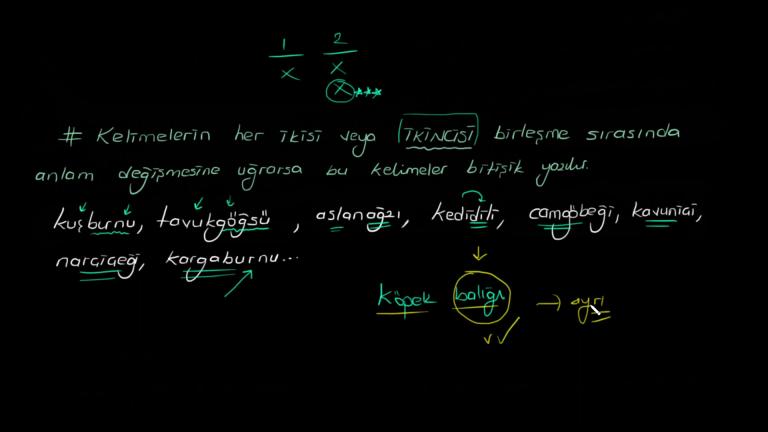 1 2
x x
x ***
# Kelimelerin her ikisi veya (İKİNCİSİ) birleşme sırasında
anlam değişmesine uğrarsa bu kelimeler bitişik yazılır.
kuşburnu, tavukgöğsü, aslanağzı, kedidili, camgöbeği, kavuniçi,
narçiçeği, kargaburnu...
köpek balığı → ayrı